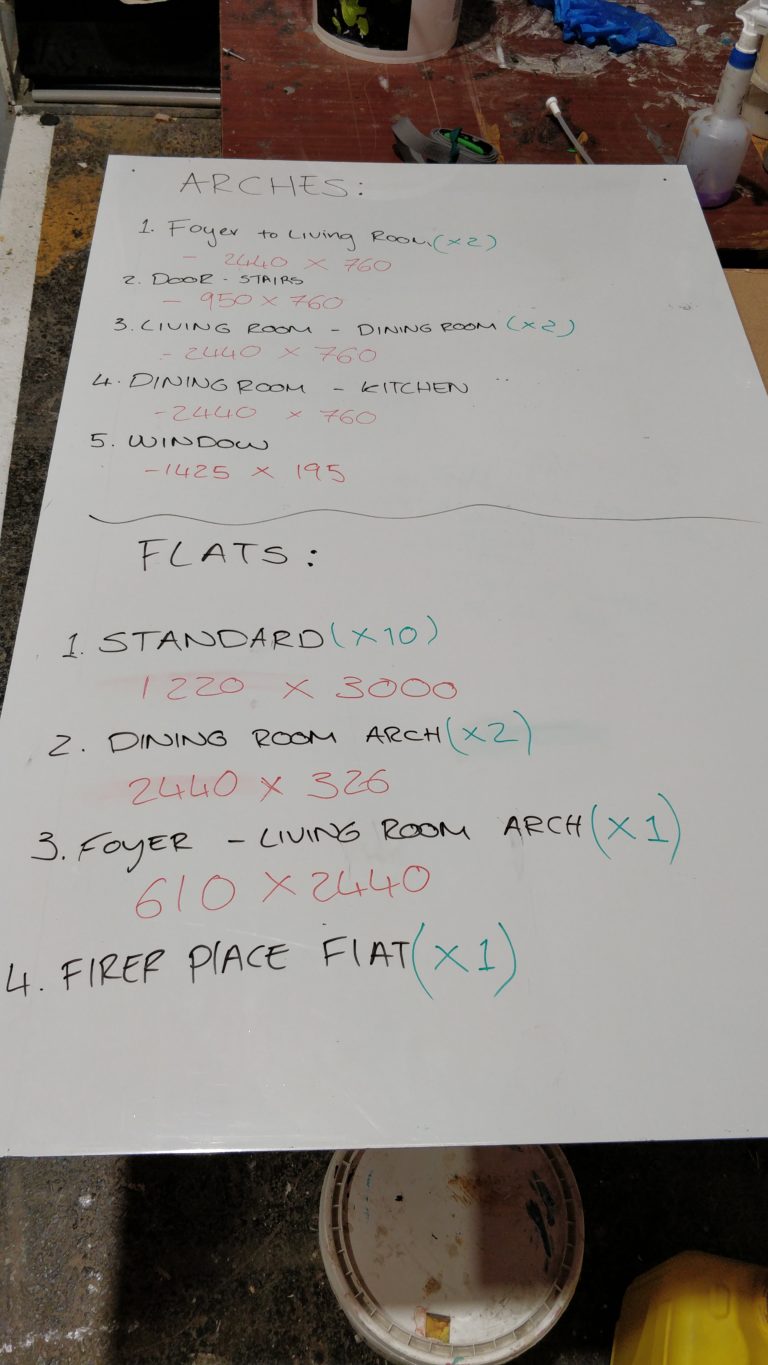 ARCHES:
1. Foyer to Living Room (x2)
- 2440 x 760
2. DOOR - STAIRS
- 950 x 760
3. LIVING ROOM - DINING ROOM (x2)
- 2440 x 760
4. DINING ROOM - KITCHEN
- 2440 x 760
5. WINDOW
- 1425 x 195
FLATS:
1. STANDARD (x10)
1220 x 3000
2. DINING ROOM ARCH (x2)
2440 x 326
3. FOYER - LIVING ROOM ARCH (x1)
610 x 2440
4. FIRER PLACE FLAT (x1)